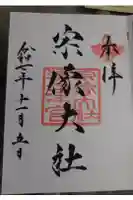 奉拝
宗像大社
令和七年十一月五日